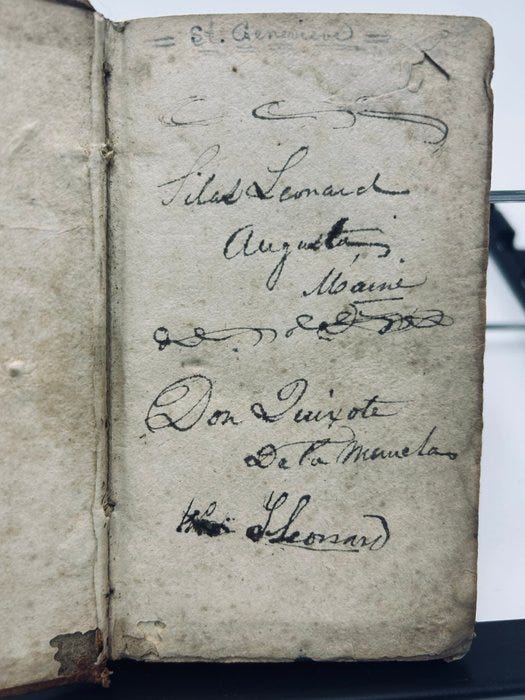 = St. Genevieve =
Silas Leonard
Augusta
Maine
Don Quixote
De la
Leonard